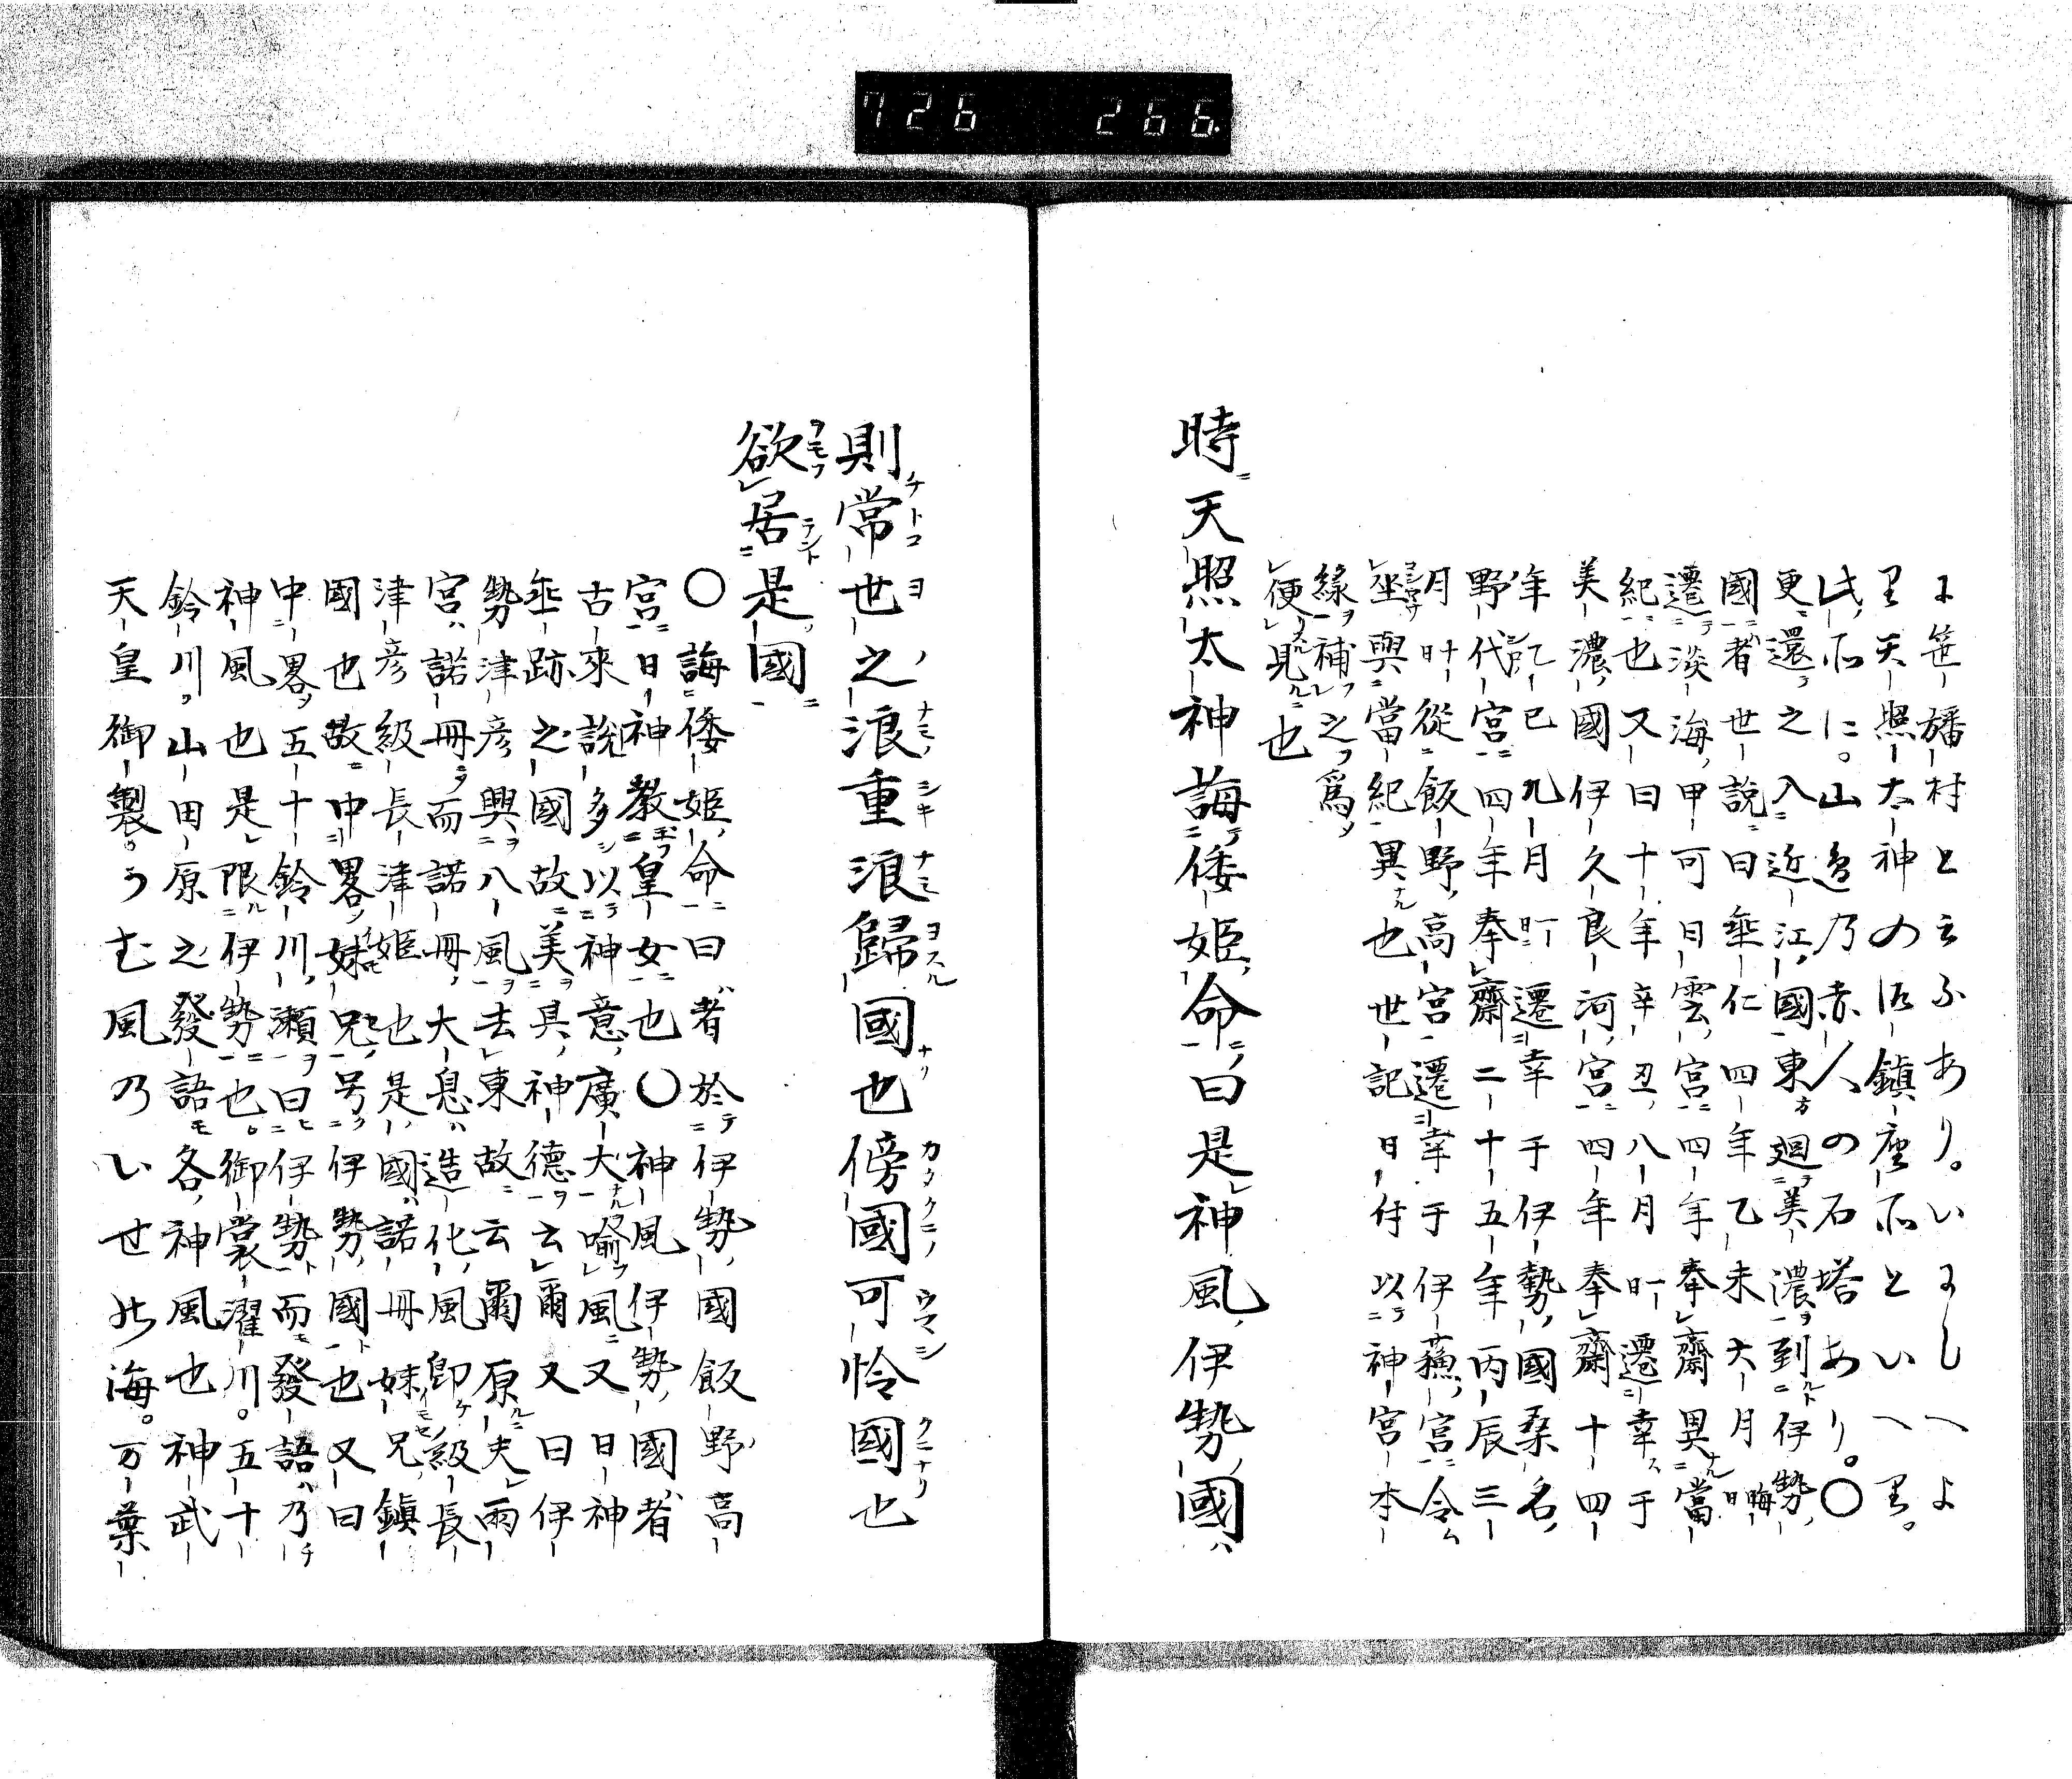 726 266
に笹幡村と云ふあり。いにしへよ
り天照太神の御鎮座所といへり。
此所に。山邉乃赤人の石塔あり。〇
更還之入近江國東廻美濃到伊勢
國者世說曰垂仁四年乙未大月晦日
遷淡海甲可日雲宮四年奉齋異當
紀也又曰十年辛丑八月一日遷幸于
美濃國伊久良河宮四年奉齋十四
年乙巳九月一日遷幸于伊勢國桑名
野代宮四年奉齋二十五年丙辰三
月從飯野高宮遷幸于伊蘓宮令
坐與當紀異也世記日付以神宮本
緣補之爲
便見也
時天照太神誨倭姫命曰是神風伊勢國
則常世之浪重浪歸國也傍國可怜國也
欲居是國
〇誨倭姫命曰者於伊勢國飯野高
宮日神教皇女也〇神風伊勢國者
古來說多以神意廣大喩風又日神
垂跡之國故美具神德云爾又曰伊
勢津彦興八風去東故云爾原夫雨
宮諾冊而諾冊大息造化風卽級長
津彦級長津姫也是國諾冊妹兄鎮
國也故中畧妹兄号伊勢國也又曰
中畧五十鈴川瀬曰伊勢而發語乃
神風也是限伊勢也。御裳濯川。五十
鈴川山田原之發語各神風也神武
天皇御製。うむ風乃いせ此海。万葉